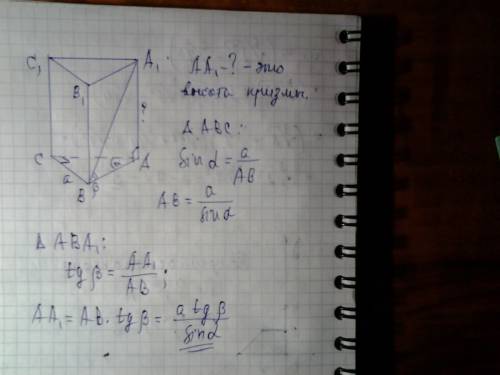 C₁ A₁
B₁
?
C α A
a
B β
AA₁ - ? - это
высота призмы.
Δ ABC:
sin α = a/AB
AB = a/sin α
Δ ABA₁:
tg β = AA₁/AB;
AA₁ = AB · tg β = a tg β/sin α